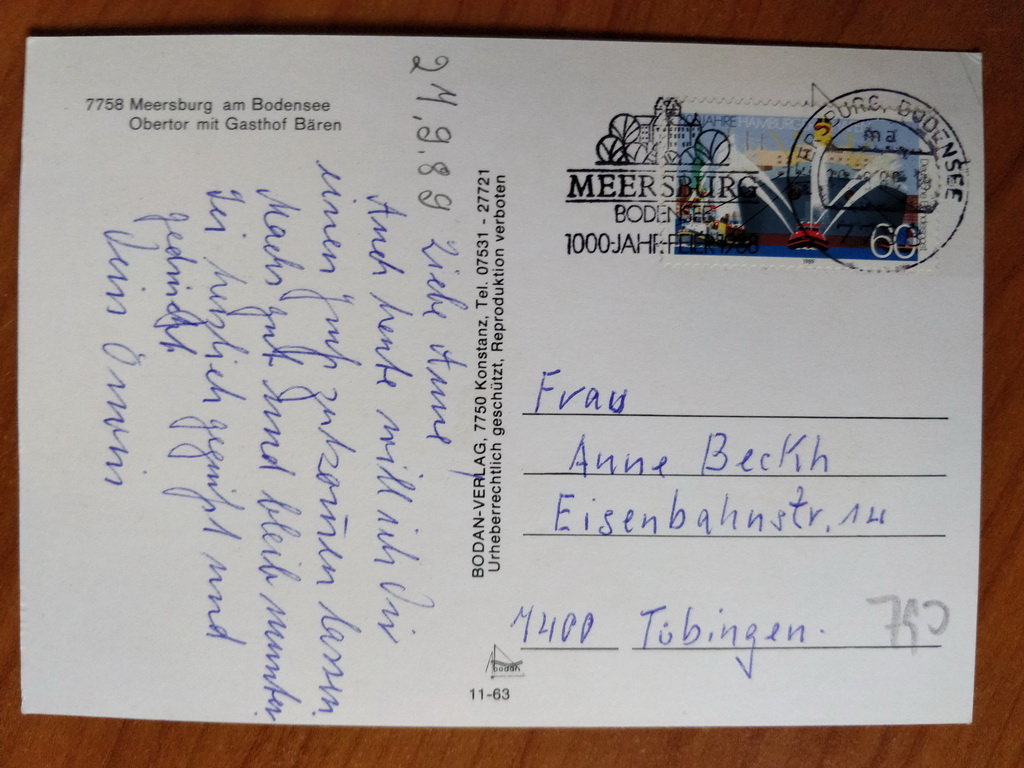 7758 Meersburg am Bodensee
Obertor mit Gasthof Bären
24.9.89
Liebe Anne,
Auch heute will ich Dir
einen Gruß zukommen lassen.
Mach's gut und bleib munter
Sei herzlich gegrüßt und
gedrückt
Dein
BODAN-VERLAG, 7750 Konstanz, Tel. 07531 - 27721
Urheberrechtlich geschützt, Reproduktion verboten
bodan
11-63
MEERSBURG
BODENSEE
1000-JAHR-FEIER 1988
JAHRE HAMBURG
60
MEERSBURG, BODENSEE
ma
Frau
Anne Beckh
Eisenbahnstr. 14
7400 Tübingen.
790